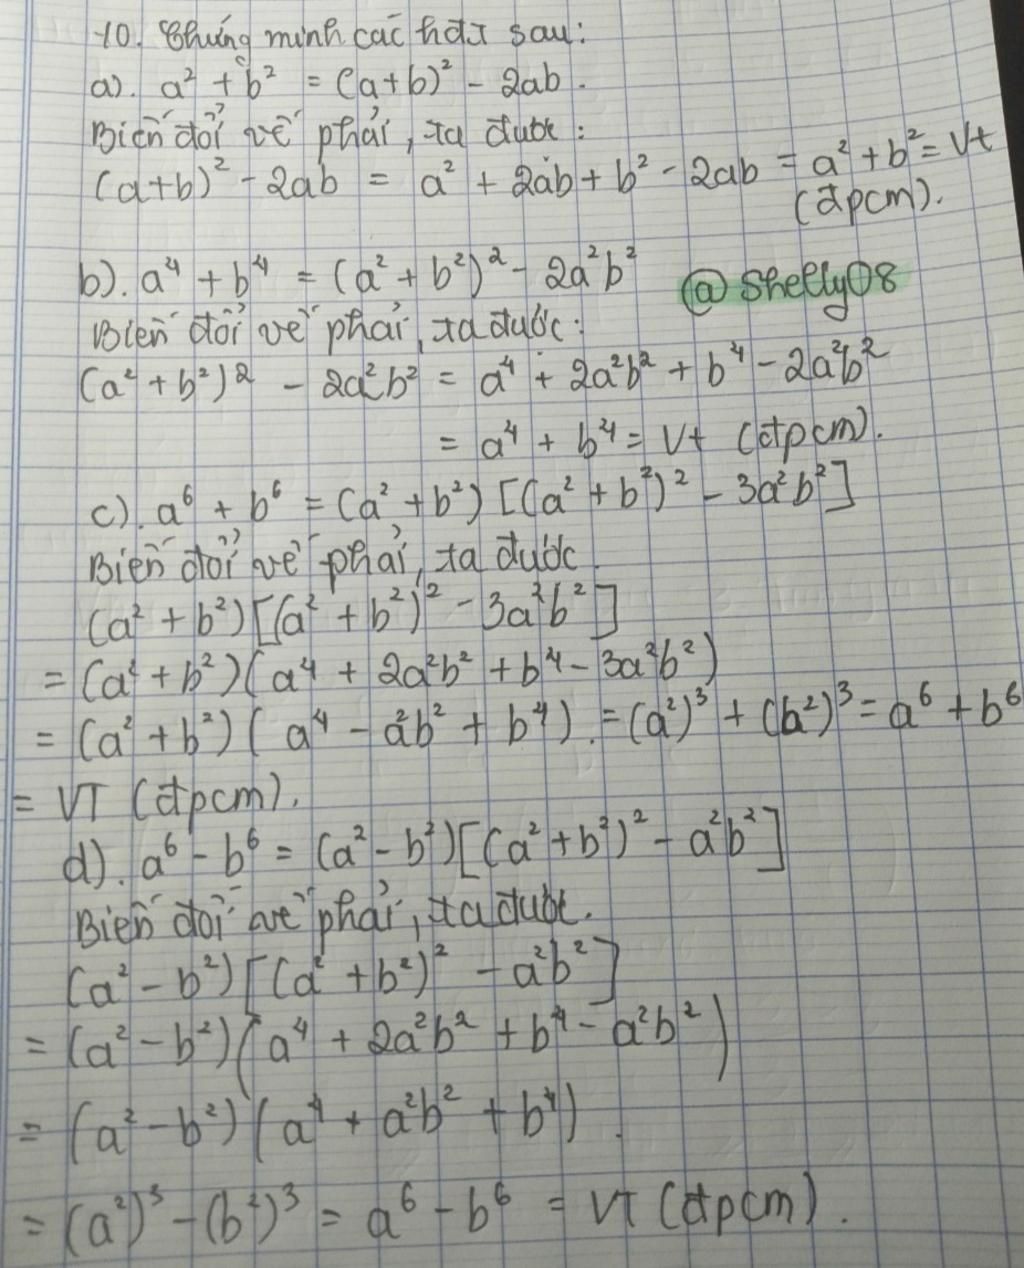 10. Chứng minh các hđt sau:
a). a² + b² = (a+b)² - 2ab.
Biến đổi vế phải, ta được:
(a+b)² - 2ab = a² + 2ab + b² - 2ab = a² + b² = Vt
(đpcm).
b). a⁴ + b⁴ = (a² + b²)² - 2a²b² @Shelly08
Biến đổi vế phải, ta được:
(a² + b²)² - 2a²b² = a⁴ + 2a²b² + b⁴ - 2a²b²
= a⁴ + b⁴ = Vt (đpcm).
c). a⁶ + b⁶ = (a² + b²) [(a² + b²)² - 3a²b²]
Biến đổi vế phải, ta được.
(a² + b²) [(a² + b²)² - 3a²b²]
= (a² + b²) (a⁴ + 2a²b² + b⁴ - 3a²b²)
= (a² + b²) (a⁴ - a²b² + b⁴). = (a²)³ + (b²)³ = a⁶ + b⁶
= VT (đpcm).
d). a⁶ - b⁶ = (a² - b²) [(a² + b²)² - a²b²]
Biến đổi vế phải, ta được.
(a² - b²) [(a² + b²)² - a²b²]
= (a² - b²) (a⁴ + 2a²b² + b⁴ - a²b²)
= (a² - b²) (a⁴ + a²b² + b⁴).
= (a²)³ - (b²)³ = a⁶ - b⁶ = VT (đpcm).